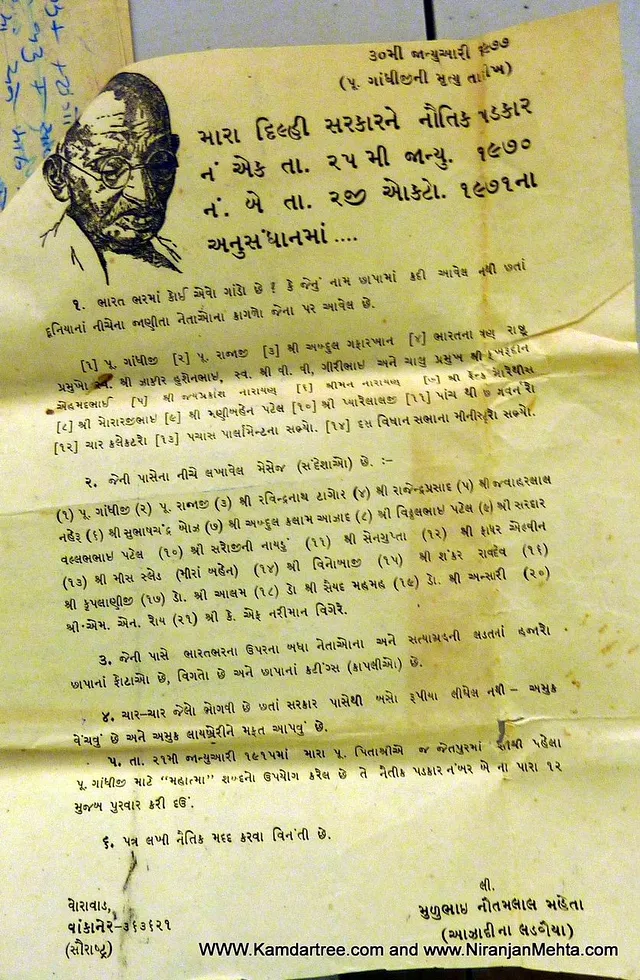 ૩૦મી જાન્યુઆરી ૧૯૭૭
(પૂ. ગાંધીજીની મૃત્યુ તારીખ)
મારા દિલ્હી સરકારને નૌતિક પડકાર
નં એક તા. ૨૫ મી જાન્યુ. ૧૯૭૦
નં. બે તા. ૨જી ઓકટો. ૧૯૭૧ના
અનુસંધાનમાં ....
૧. ભારત ભરમાં કોઈ એવો ગાંડો છે ? કે જેનું નામ છાપામાં કદી આવેલ નથી છતાં
દુનિયાનાં નીચેના જાણીતા નેતાઓના કાગળો જેના પર આવેલ છે.
[૧] પૂ. ગાંધીજી [૨] પૂ. રાજાજી [૩] શ્રી અબ્દુલ ગફારખાન [૪] ભારતના ત્રણ રાષ્ટ્ર
પ્રમુખો સ્વ. શ્રી ઝાકીર હુશેનભાઇ, સ્વ. શ્રી વી. વી. ગીરીભાઇ અને ચાલુ પ્રમુખ શ્રી ફખરૂદીન
એહમદભાઈ [૫] શ્રી જયપ્રકાશ નારાયણ [૬] શ્રીમન નારાયણ [૭] શ્રી ફેન્ક મોરેથીસ
[૮] શ્રી મોરારજીભાઇ [૯] શ્રી મણીબહેન પટેલ [૧૦] શ્રી પ્યારેલાલજી [૧૧] પાંચ થી ૭ ગવર્નરો
[૧૨] ચાર કલેકટરો [૧૩] પચાસ પાર્લામેન્ટના સભ્યો. [૧૪] દસ વિધાન સભાના મીનીસ્ટ્રો સભ્યો.
૨. જેની પાસેના નીચે લખાવેલ મેસેજ (સંદેશાઓ) છે. :–
(૧) પૂ. ગાંધીજી (૨) પૂ. રાજાજી (૩) શ્રી રવિન્દ્રનાથ ટાગોર (૪) શ્રી રાજેન્દ્રપ્રસાદ (૫) શ્રી જવાહરલાલ
નહેરૂ (૬) શ્રી સુભાષચંદ્ર બોઝ (૭) શ્રી અબ્દુલ કલામ આઝાદ (૮) શ્રી વિઠ્ઠલભાઇ પટેલ (૯) શ્રી સરદાર
વલ્લભભાઇ પટેલ (૧૦) શ્રી સરોજીની નાયડું (૧૧) શ્રી સેનગુપ્તા (૧૨) શ્રી ફાધર એલ્વીન
(૧૩) શ્રી મીસ સ્લેડ (મીરાં બહેન) (૧૪) શ્રી વિનોબાજી (૧૫) શ્રી શંકર રાવદેવ (૧૬)
શ્રી કૃપલાણીજી (૧૭) ડો. શ્રી આલમ (૧૮) ડો શ્રી સૈયદ મહમદ (૧૯) ડો. શ્રી અન્સારી (૨૦)
શ્રી એમ. એન. રોય (૨૧) શ્રી કે. એફ નરીમાન વિગેરે.
૩. જેની પાસે ભારતભરના ઉપરના બધા નેતાઓના અને સત્યાગ્રહની લડતનાં હજારો
છાપાનાં ફોટાઓ છે, વિગતો છે અને છાપાનાં કટીંગ્સ (કાપલીઓ) છે.
૪. ચાર-ચાર જેલો ભોગવી છે છતાં સરકાર પાસેથી બસો રૂપીયા લીધેલ નથી – અમુક
વેંચવું છે અને અમુક લાયબ્રેરીને મફત આપવું છે.
૫. તા. ૨૧મી જાન્યુઆરી ૧૯૧૫માં મારા પૂ. પિતાશ્રીએ જ જેતપુરમાં સૌથી પહેલા
પૂ. ગાંધીજી માટે "મહાત્મા" શબ્દનો ઉપયોગ કરેલ છે તે નૈતીક પડકાર નંબર બે ના પારા ૧૨
મુજબ પુરવાર કરી દઉં.
૬. પત્ર લખી નૈતિક મદદ કરવા વિનંતી છે.
લી.
વોરાવાડ, મુળુભાઇ નૌતમલાલ મહેતા
વાંકાનેર-૩૬૩૬૨૧ (આઝાદીના લડવૈયા)
(સૌરાષ્ટ્ર) WWW.Kamdartree.com and www.NiranjanMehta.com